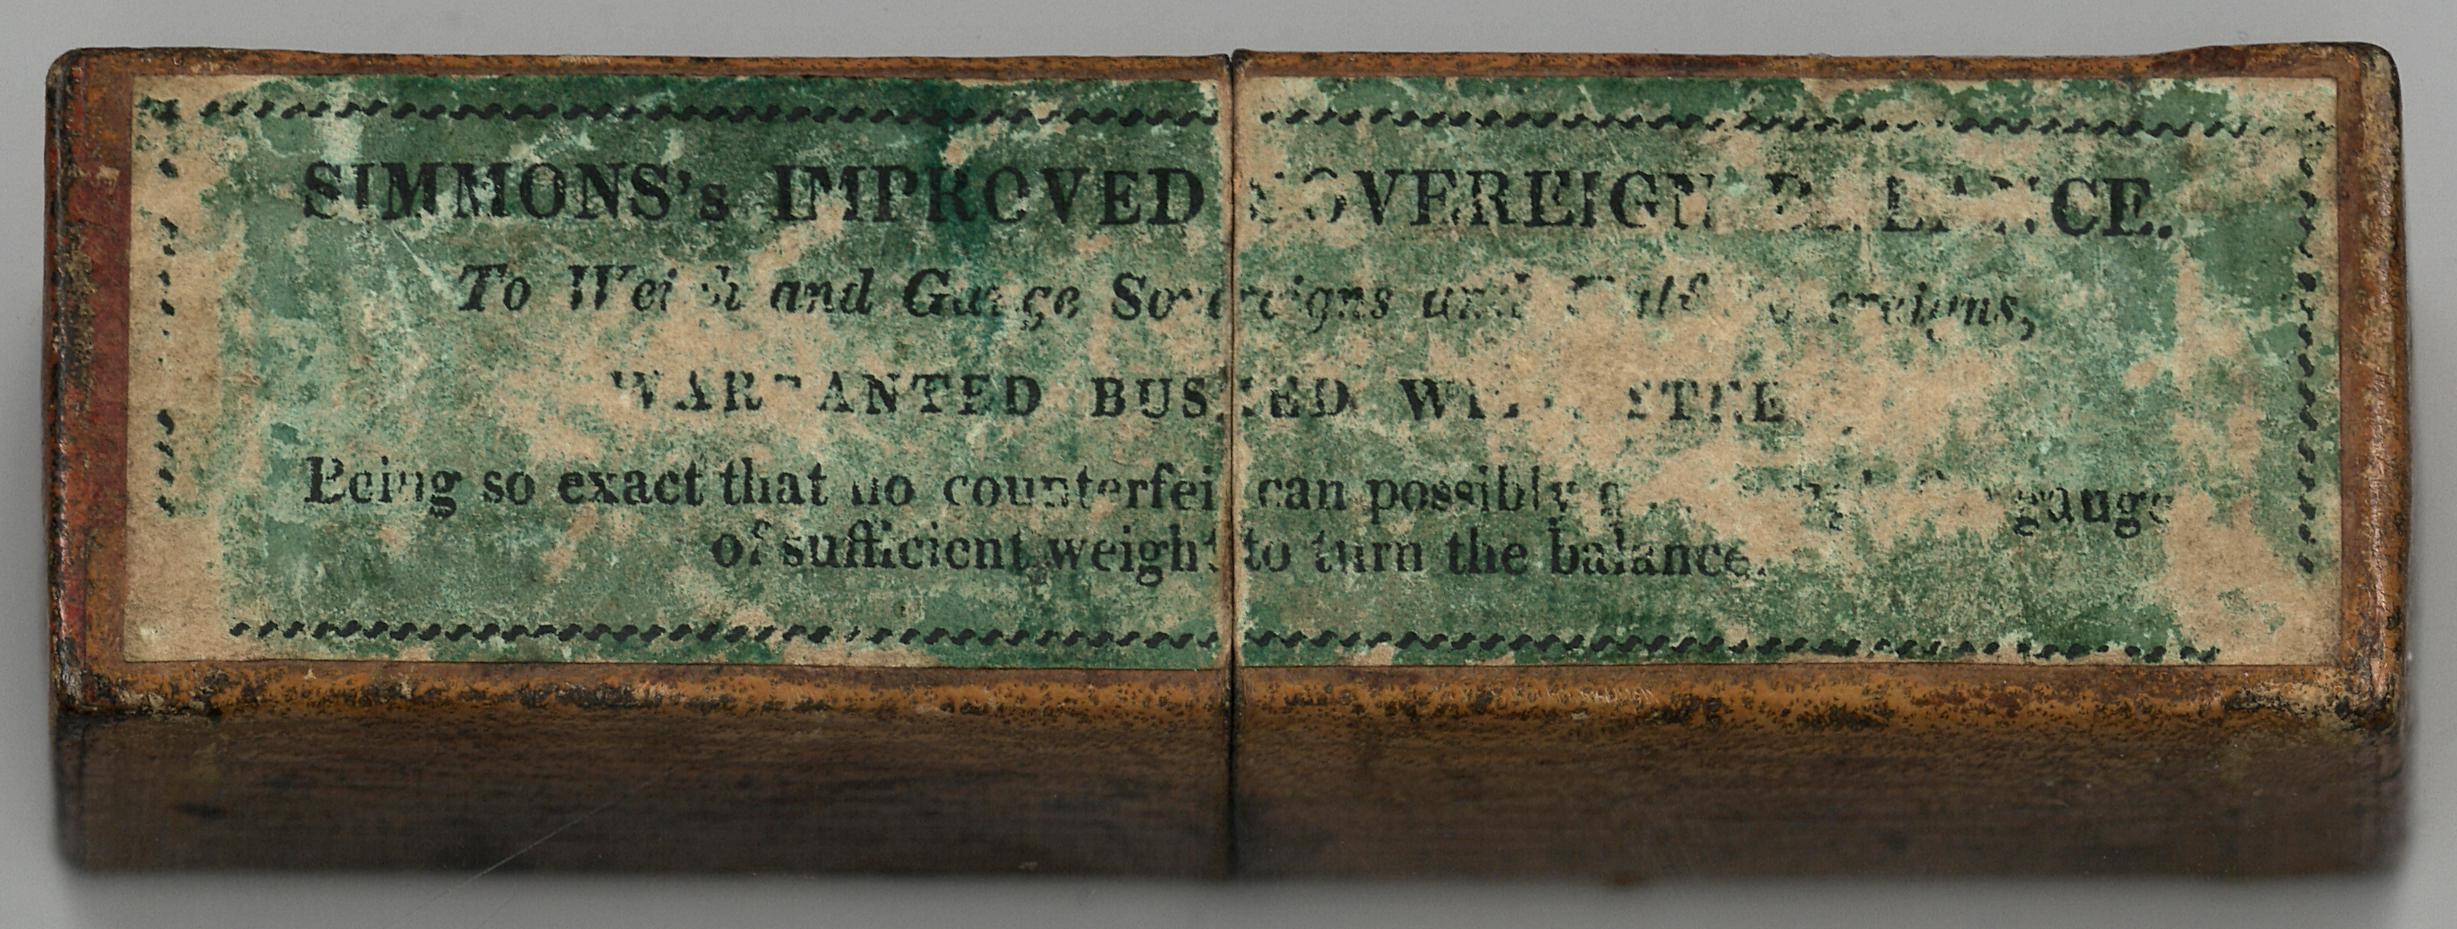 SIMMONS's IMPROVED SOVEREIGN BALANCE.
To Weigh and Gauge Sovereigns and Half Sovereigns,
WARRANTED BUSHED WITH STEEL
Being so exact that no counterfeit can possibly gauge
of sufficient weight to turn the balance.